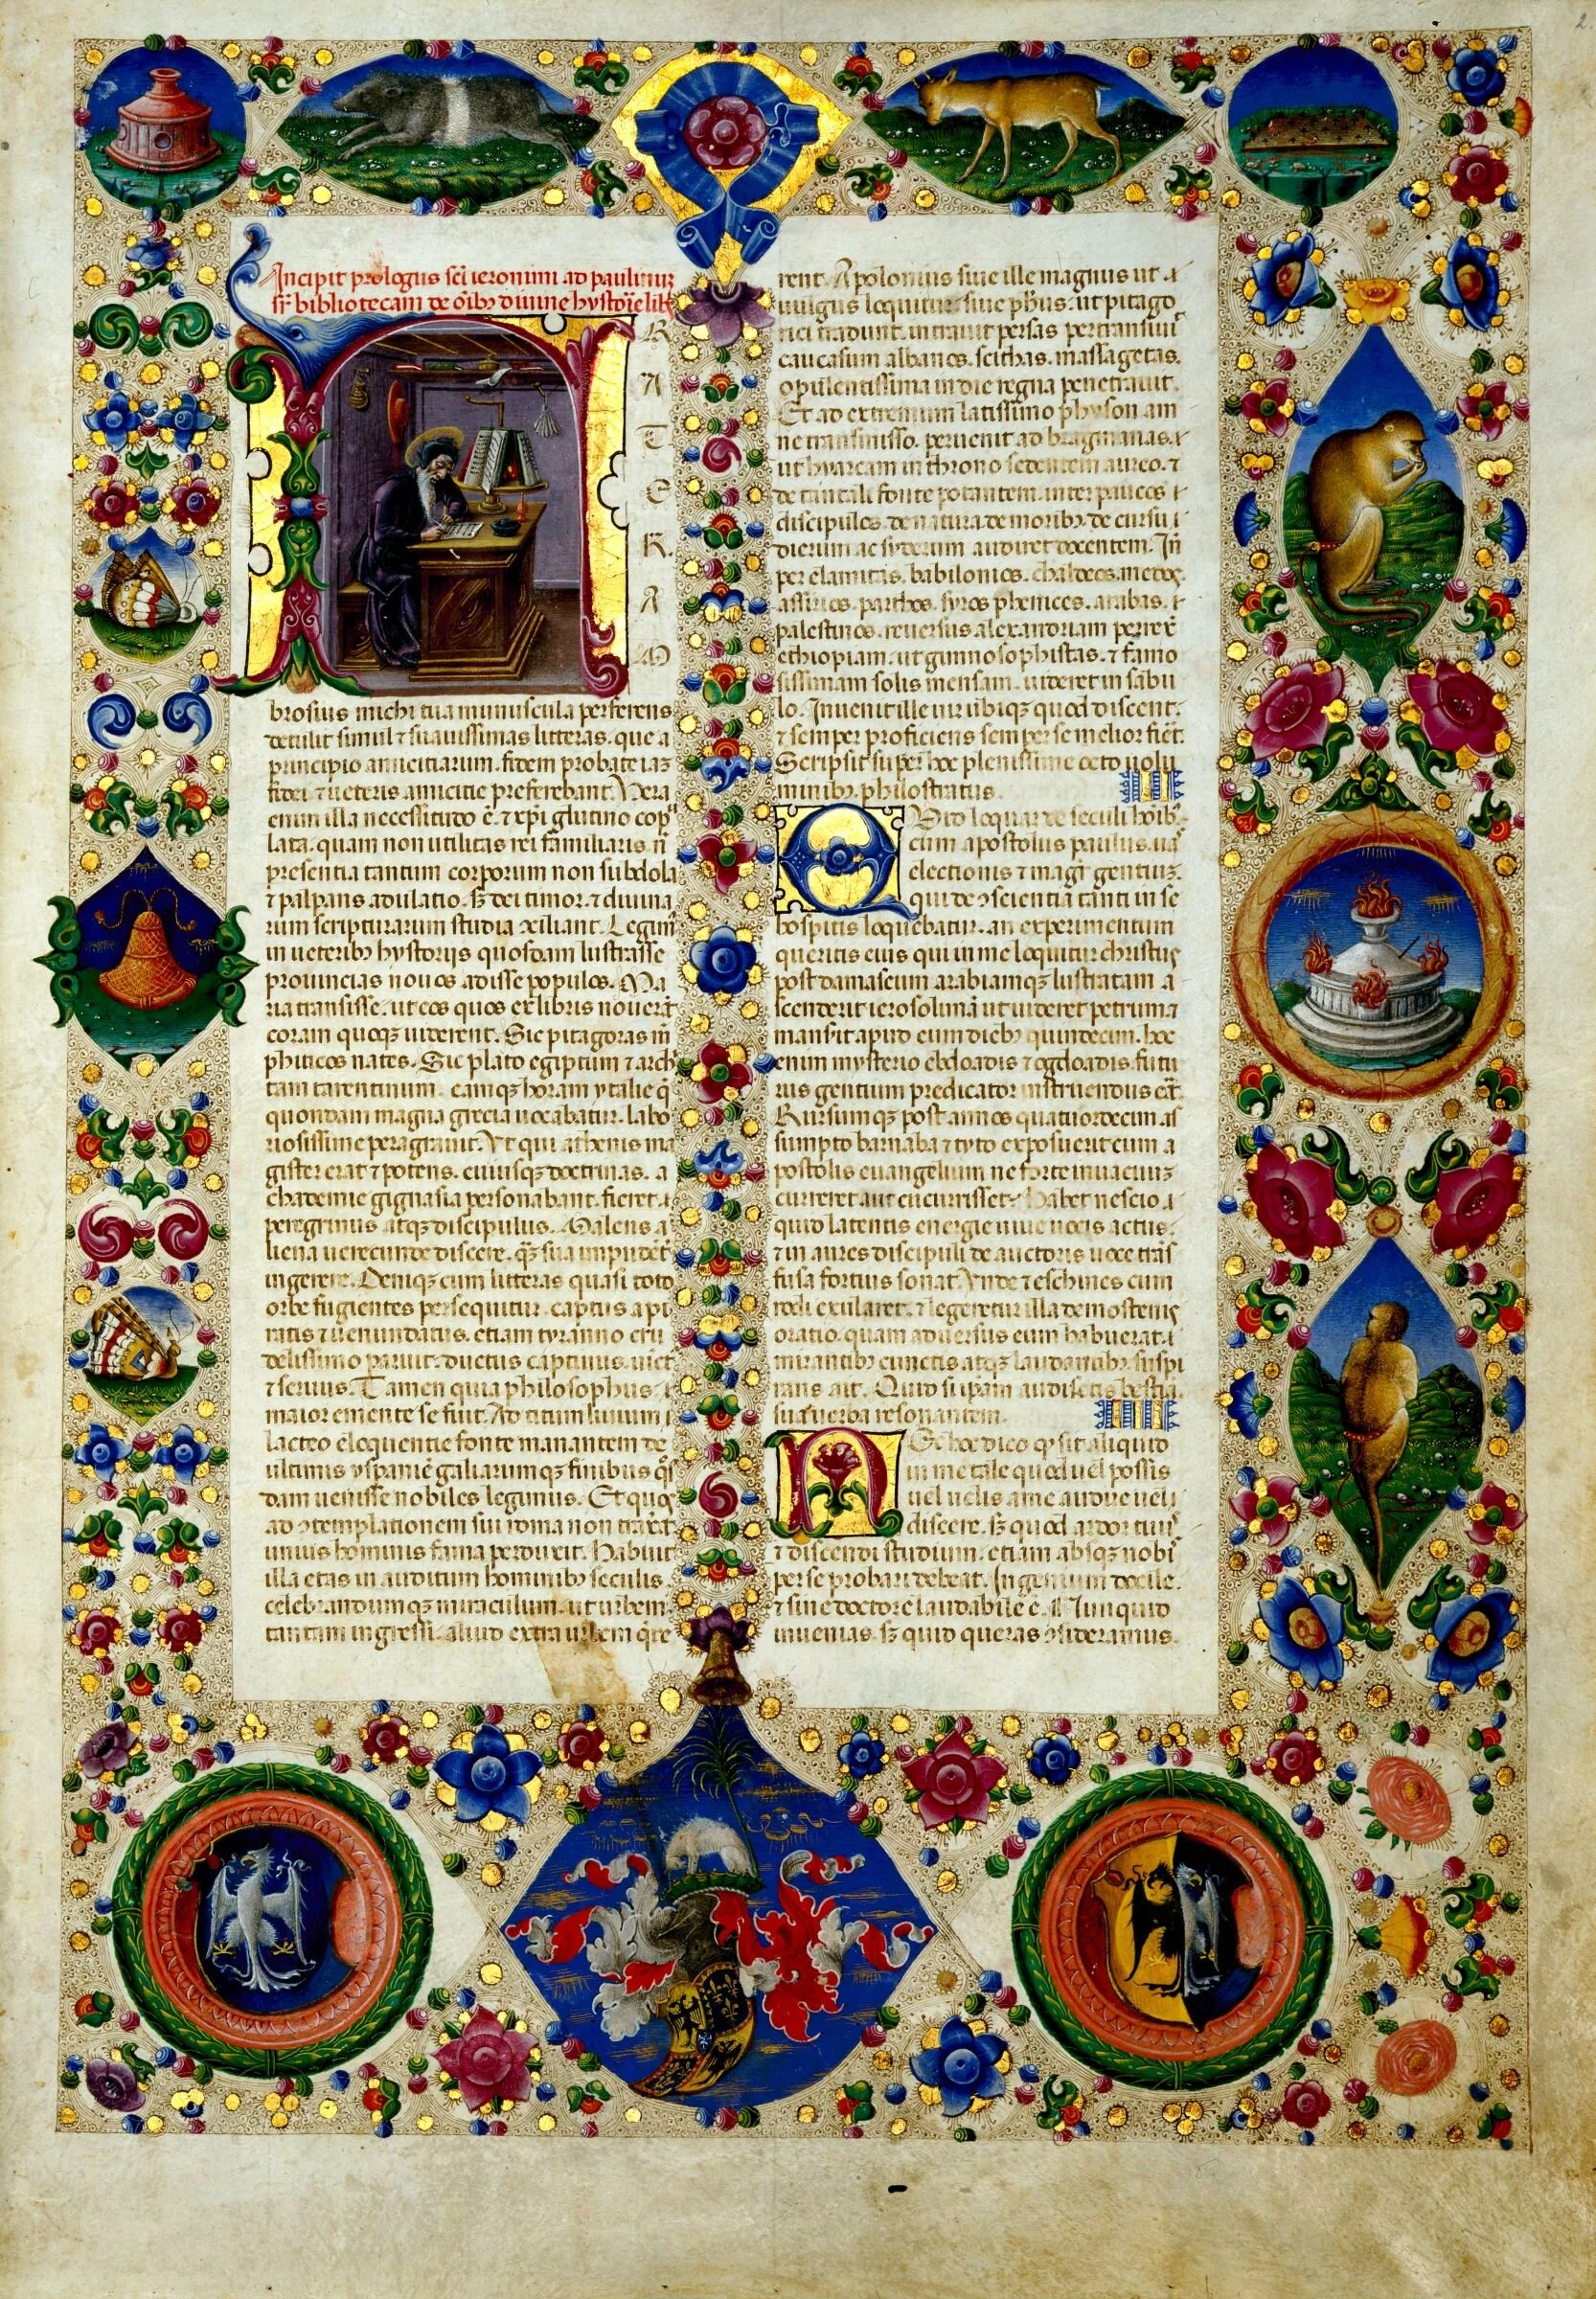 Incipit prologus sci ieronimi ad paulinuz
biblio tecam de oibꝫ diuine hystorie
R
A
T
E
R.
A
M
brosius michi tua munuscula perferens
detulit simul ⁊ suauissimas litteras. que a
principio amicitiarum. fidem probate iaz
fidei ⁊ ueteris amicitie preferebant. Vera
enim illa necessitudo ē. ⁊ xp̄i glutino cop
lata. quam non utilitas rei familiaris. n̄
presentia tantum corporum non subdola
⁊ palpans adulatio. sꝫ dei timor. ⁊ diuina
rum scripturarum studia ɔciliant. Legim
in ueteribꝫ hystorijs quosdam lustrasse
prouincias nouos adisse populos. Ma
ria transisse. ut eos quos ex libris nouerāt
coram quoqꝫ uiderent. Sic pitagoras m̄
phiticos uates. Sic plato egiptum ⁊ arch
tam tarentinum. eamqꝫ horam ytalie q̄
quondam magna grecia uocabatur. labo
riosissime peragrauit. Vt qui athenis ma
gister erat ⁊ potens. cuiusqꝫ doctrinas. a
chademie gignasia personabant. fieret
peregrinus atqꝫ discipulus. Malens a
liena uerecunde discere. qꝫ sua impudēt
ingerere. Deniqꝫ cum litteras quasi toto
orbe fugientes persequitur. captus a pi
ratis ⁊ uenundatus. etiam tyranno cru
delissimo paruit. ductus captiuus. uict
⁊ seruus. Tamen quia philosophus
maior emente se fuit. Ad titum liuium
lacteo eloquentie fonte manantem de
ultimis yspanie galiarumqꝫ finibus q̄s
dam uenisse nobiles legimus. Et quos
ad ɔtemplationem sui roma non traxerat
unius hominis fama perduxit. Habuit
illa etas in auditum hominibꝫ seculis
celebrandumqꝫ miraculum. ut urbem
tantam ingressi. aliud extra urbem q̄re
rent. Apolonius siue ille magnus ut
uulgus loquitur. siue ph̄us. ut pitago
rici tradunt. intrauit persas pertransiui
caucasum albanos. scithas. massagetas.
opulentissima indie regna penetrauit.
Et ad extremum latissimo physon am
ne transmisso. peruenit ad bragmanas.
ut hyarcam in throno sedentem aureo. ⁊
de tantali fonte potantem. inter paucos
discipulos. de natura de moribꝫ. de cursu
dierum ac syderum audiret docentem. In
per elamitas. babilonios. chaldeos. medos.
assirios. parthos. syros phenices. arabas.
palestinos. reuersus alexandriam perrex
ethiopiam. ut gimnosophistas. ⁊ famo
sissimam solis mensam. uideret in sabu
lo. Inuenit ille uir ubiqꝫ quod disceret.
⁊ semper proficiens semper se melior fieret.
Scripsit super hoc plenissime octo uolu
minibꝫ. philostratus. III
Quid loquar de seculi hoibꝫ.
cum apostolus paulus. uas
electionis ⁊ magr gentiuz.
qui de ɔscientia tanti in se
hospitis loquebatur. an experimentum
queritis eius qui in me loquitur christus
post damascum arabiamqꝫ lustratam a
scenderit ierosolimā ut uideret petrum ⁊
mansit apud eum diebꝫ quindecim. hoc
enim mysterio ebdoadis ⁊ ogdoadis. futu
rus gentium predicator instruendus erat.
Rursumqꝫ post annos quatuordecim as
sumpto barnaba ⁊ tyto exposuerit cum a
postolis euangelium ne forte inuacuuz
curreret aut cucurrisset. Habet nescio
quid latentis energie uiue uocis actus.
⁊ in aures discipuli de auctoris uoce trās
fusa fortius sonat. Vnde ⁊ eschines cum
rodi exularet. ⁊ legeretur illa demostenis
oratio. quam aduersus eum habuerat.
mirantibꝫ cunctis atqꝫ laudantibꝫ. suspi
rans ait. Quid si ipsam audisetis bestiā
sua uerba resonantem. IIII
Nec hoc dico qꝫ sit aliquid
in me tale quod uel possis
uel uelis a me audire uel
discere. sꝫ quod ardor tuus
⁊ discendi studium. etiam absqꝫ nobis
per se probari debeat. Ingenium docile.
⁊ sine doctore laudabile ē. Nun quid
inuenias. sꝫ quid queras ɔsideramus.